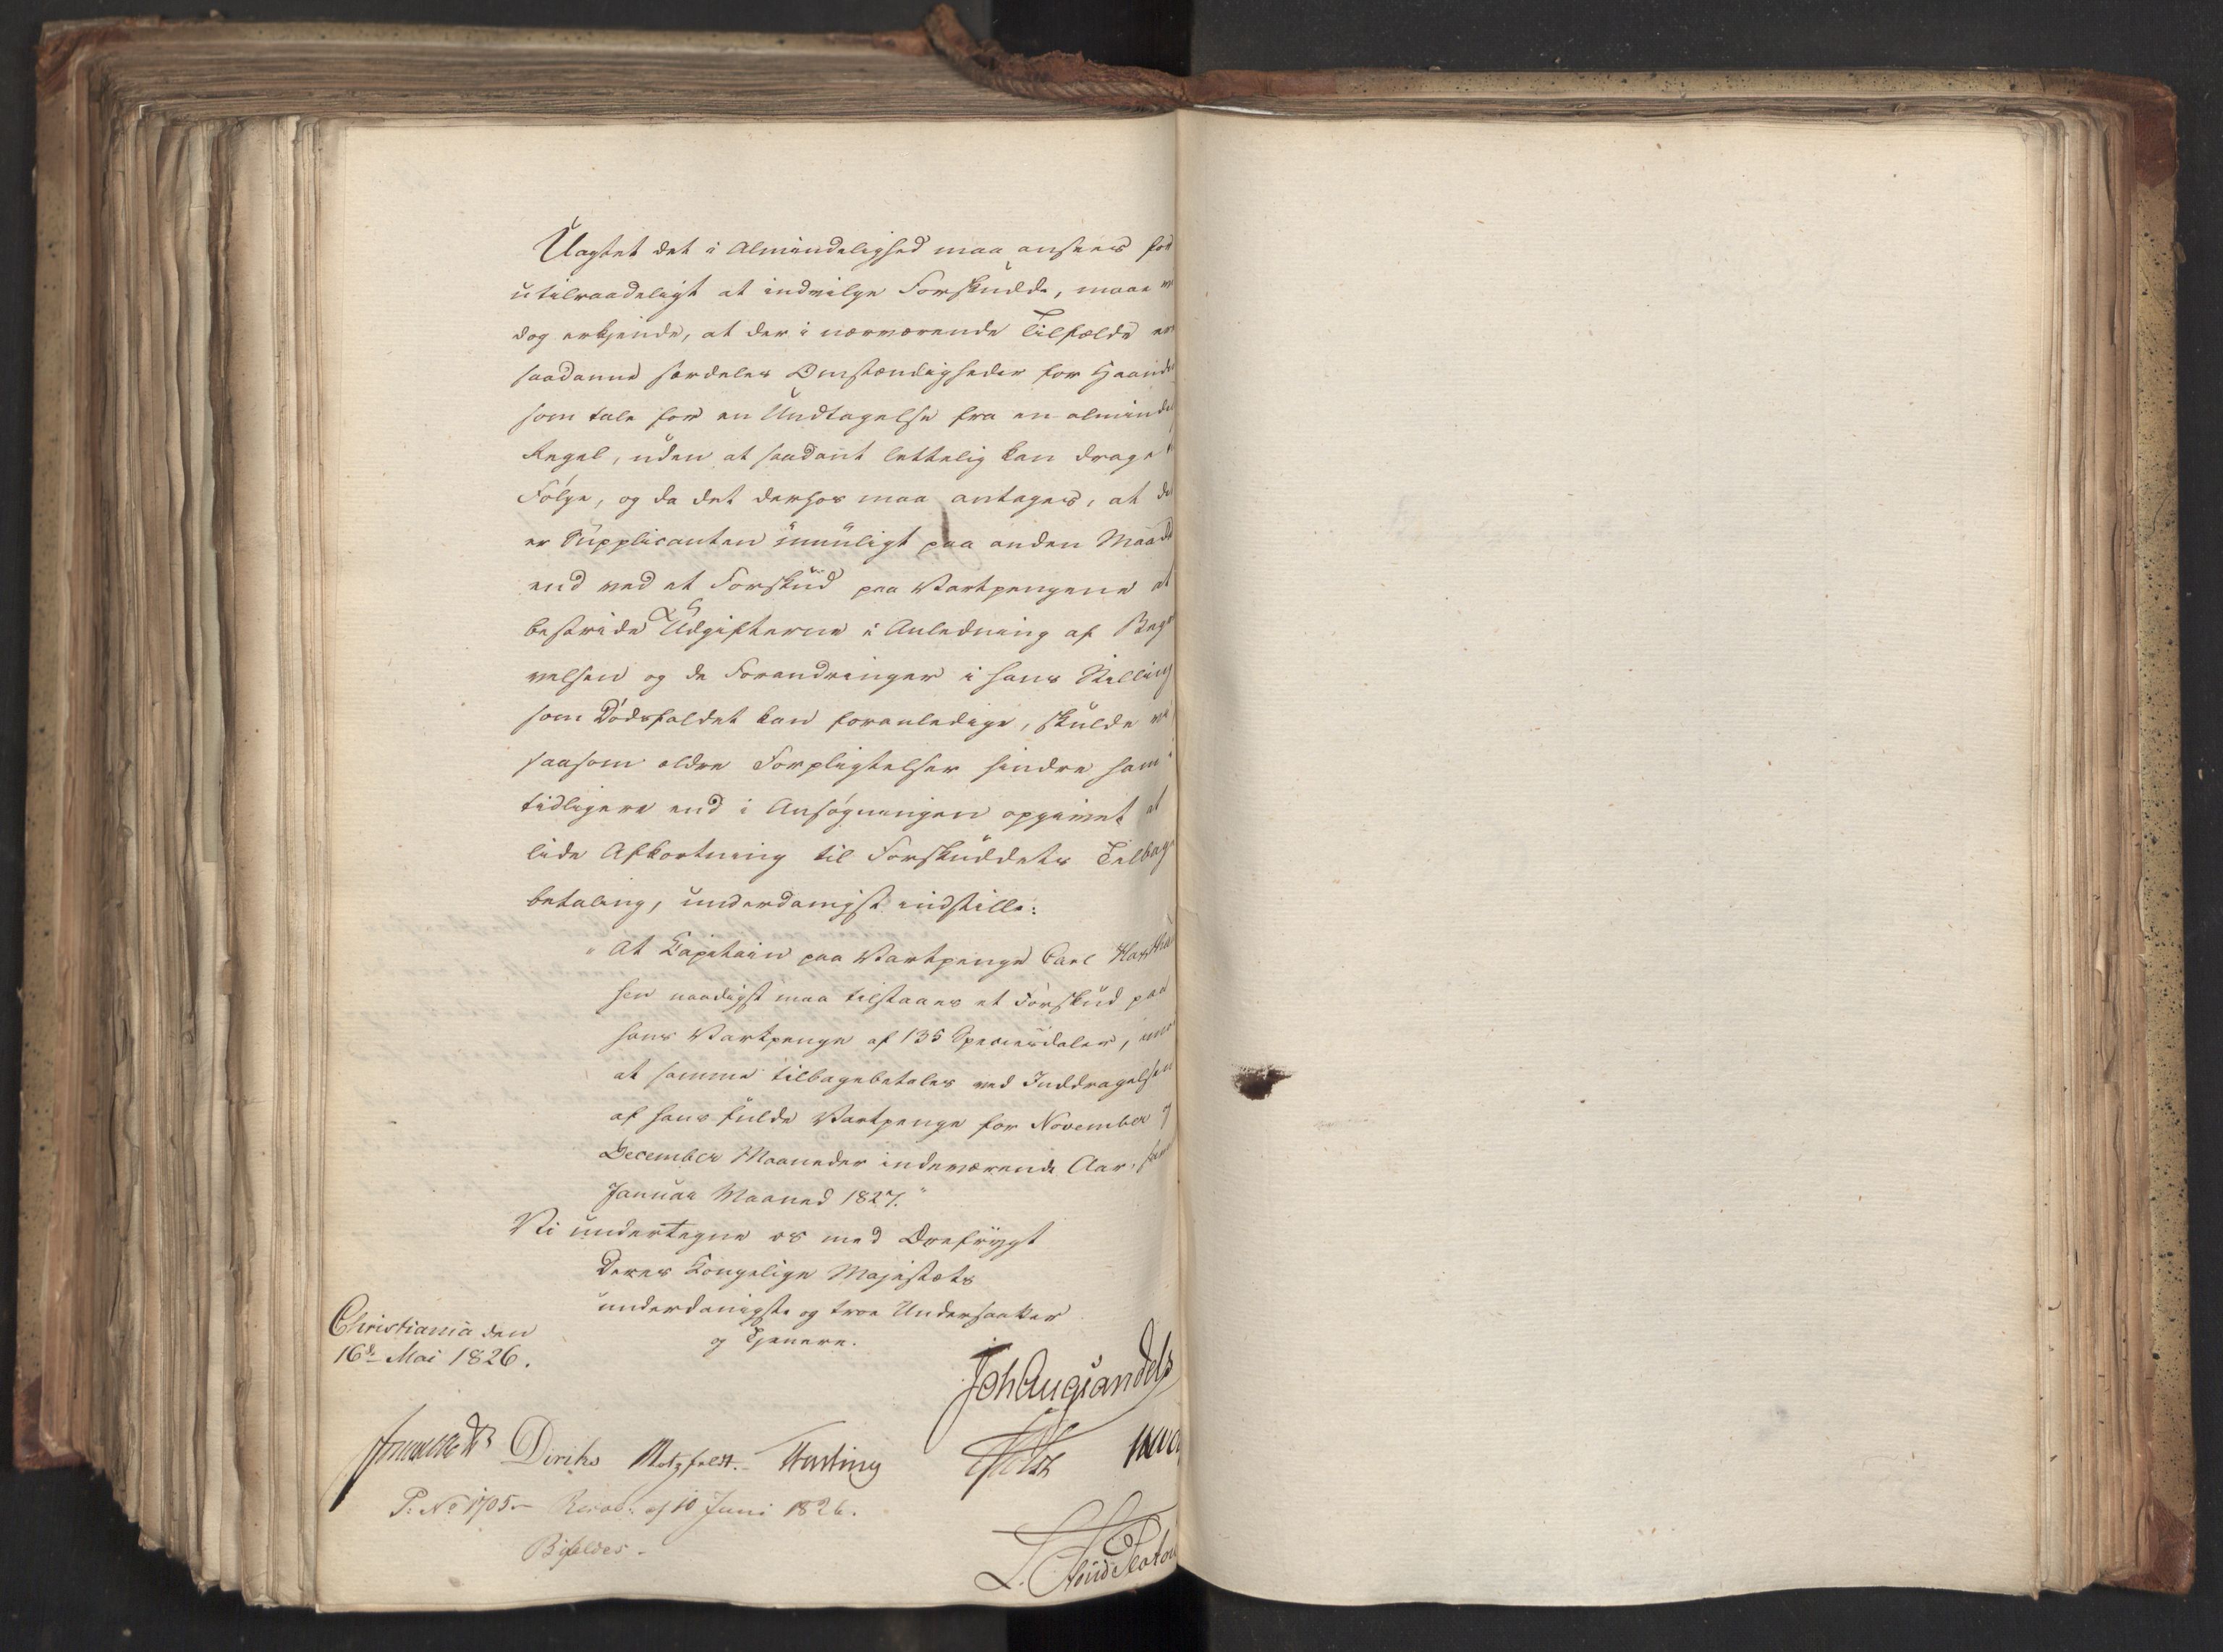 Uagtet det i Almindelighed maa ansees for
utilraadeligt at indvilge Forskudde, maae vi
dog erkjende, at der i nærværende Tilfælde ere
saadanne særdeles Omstændigheder for Haanden
som tale for en Undtagelse fra en almindel
Regel, uden at saadant lettelig kan drages
Følge, og da det derhos maa antages, at det
er Supplicanten umuligt paa anden Maade
end ved et Forskud paa Vartpengene at
bestride Udgifterne i Anledning af Begra
velsen og de Forandringer i hans Stilling
som Dødsfaldet kan foranledige, skulde vi
saasom ældre Forpligtelser hindre ham i
tidligere end i Ansøgningen opgivet at
lide Afkortning til Forskuddets Tilbage
betaling, underdanigst indstille:
"At Capitain paa Vartpenge Carl Harthau
sen naadigst maa tilstaaes et Forskud paa
hans Vartpenge af 135 Speciesdaler, imod
at samme tilbagebetales ved Inddragelsen
af hans fulde Vartpenge for November og
December Maaneder indeværende Aar, samt
Januar Maaned 1827."
Vi undertegne os med Ærefrygt
Deres Kongelige Majestæts
underdanigste og troe Undersaatter
og Tjenere.
Christiania den
16de Mai 1826.
Joh Aug Sandels
Diriks Motzfeldt. Fasting Holst
P: No 1705 - Resol: af 10 Juni 1826.
Bifaldes.